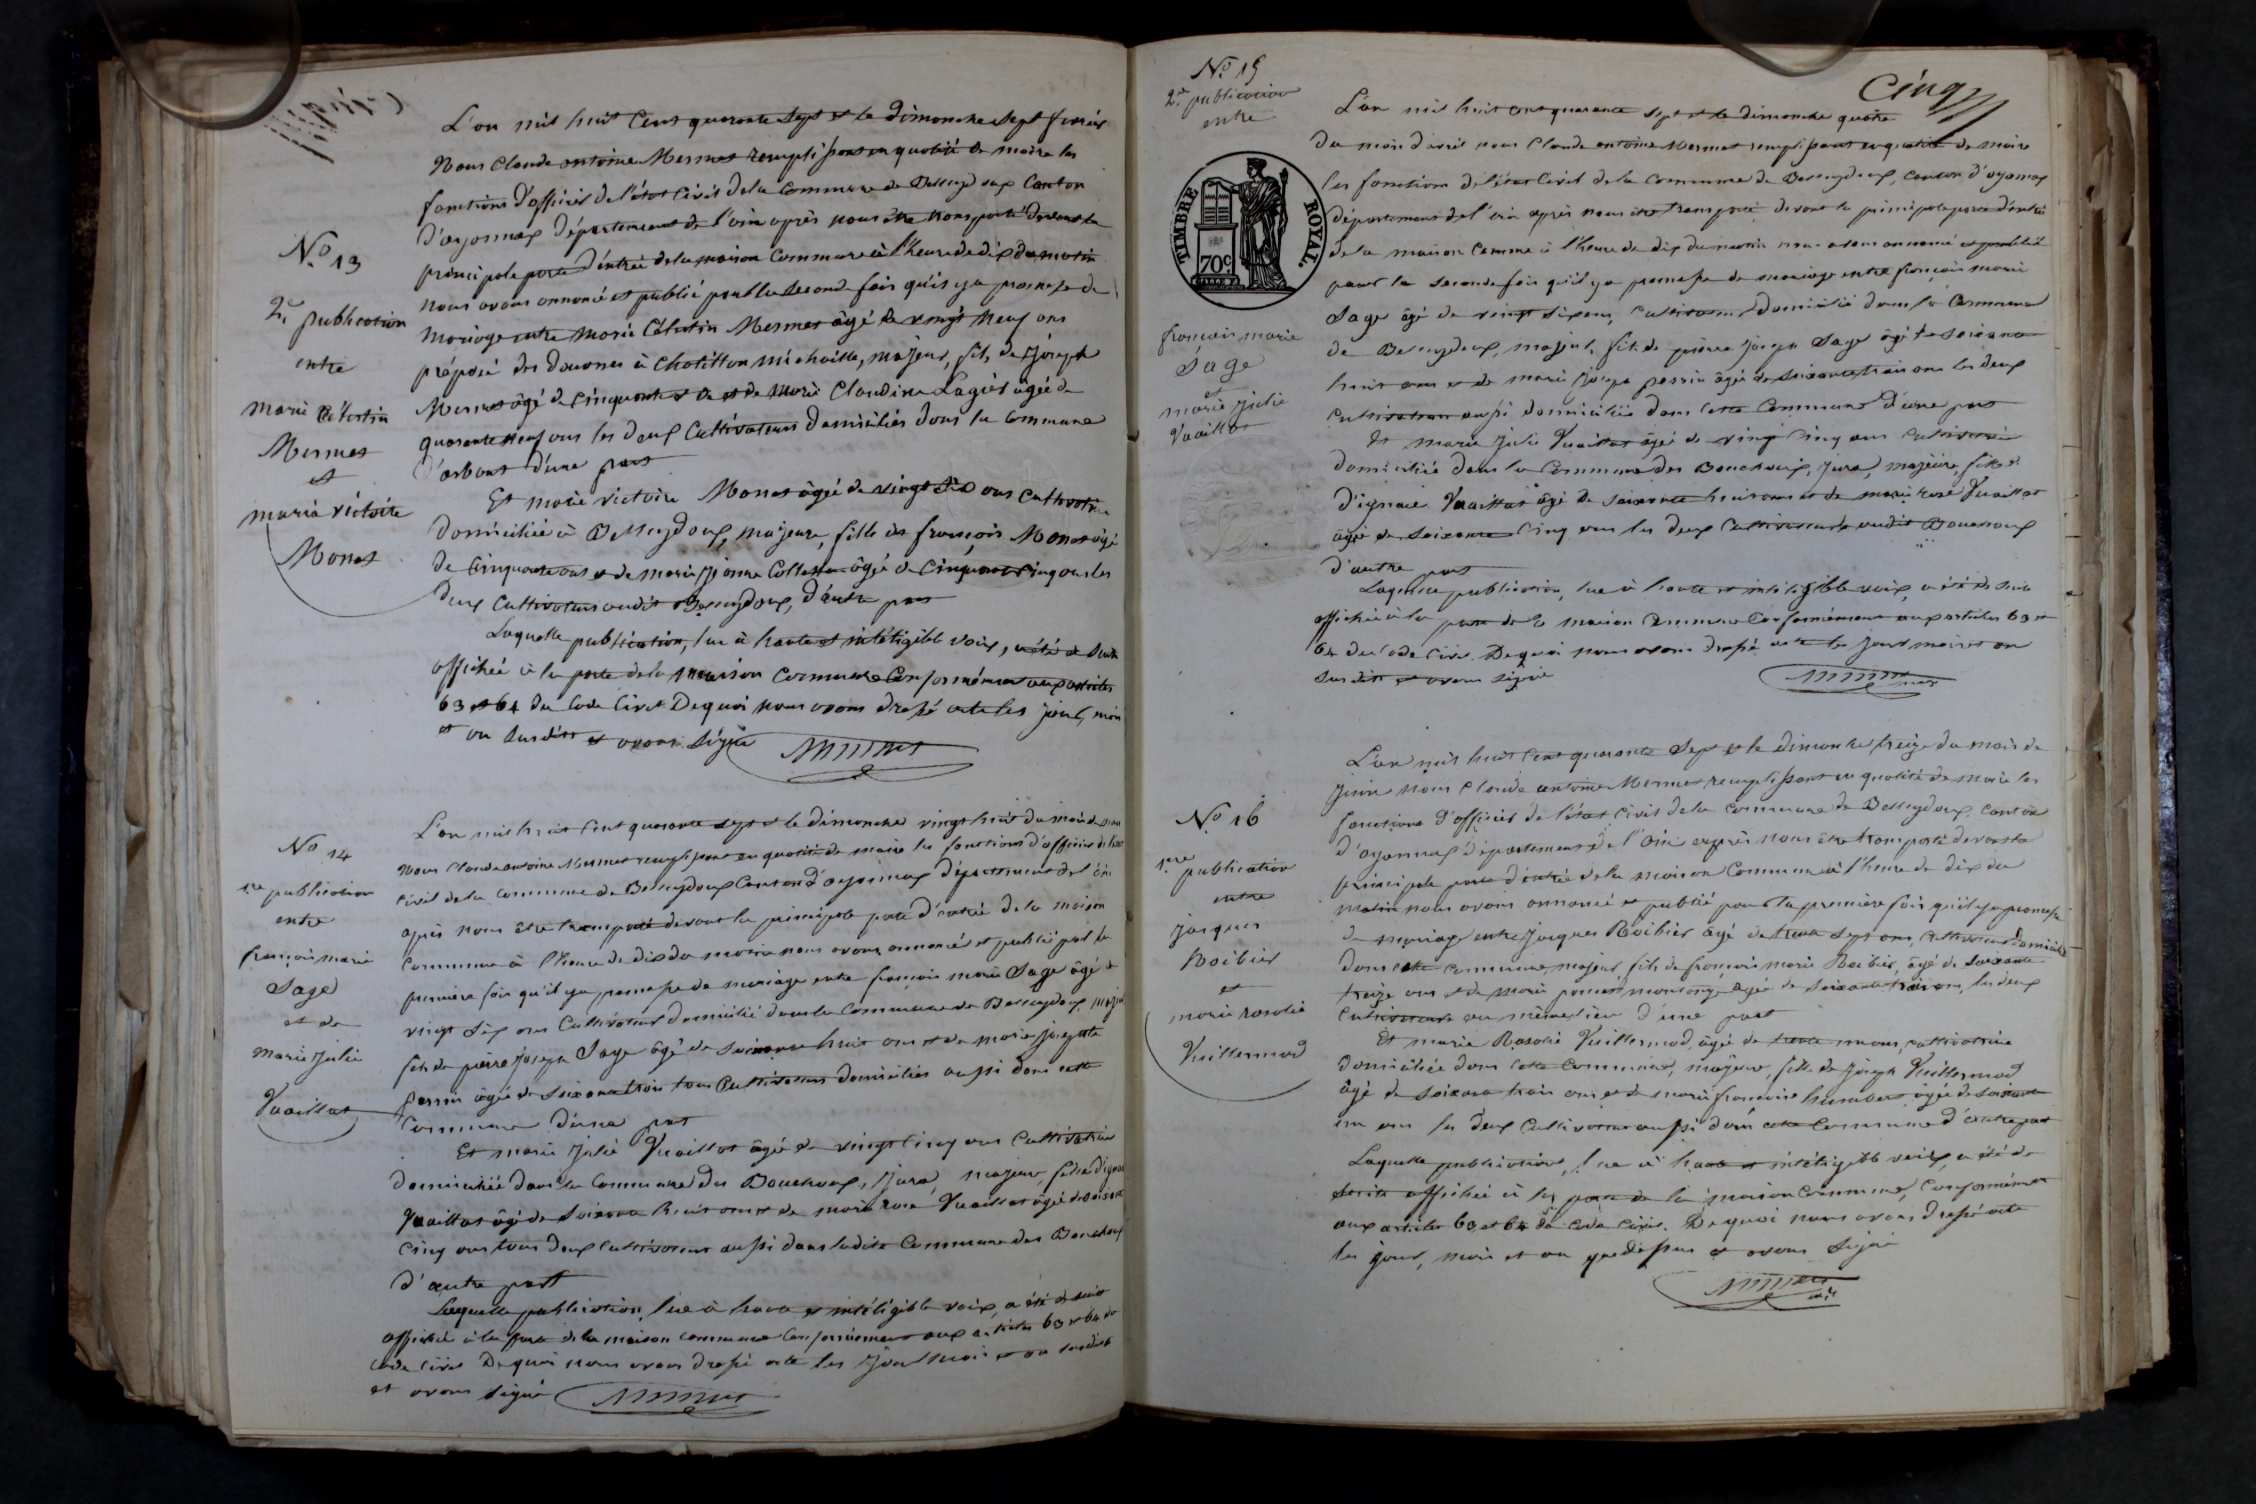 N.o 13
2.e publication
entre
marie Célestin
Mermet
et
marie victoire
Monet
L'an mil huit Cent quarante Sept et le Dimanche Sept fevrier
Nous Claude antoine Mermet remplissant en qualité de maire les
fonctions d'officier de l'état Civil de la Commune de Belleydoux Canton
d'oyonnax Département de l'ain après nous être transporté devant la
principale porte d'entrée de la maison Commune à l'heure de dix du matin
Nous avons annoncé et publié pour la Seconde fois qu'il y a promesse de
mariage entre marie Célestin Mermet âgé de vingt Neuf ans
préposé des douanes à Chatillon michaille, majeur, fils de Joseph
Mermet âgé de Cinquante et de marie Claudine Lagier âgée de
quarante neuf ans les deux Cultivateurs Domiciliés dans la Commune
d'arbent d'une part
Et marie victoire Monet âgée de vingt ans Cultivatrice
Domiciliée à Belleydoux, majeure, fille de françois Monet âgé
de Cinquante ans et de marie Collet âgée de Cinquante Cinq ans les
Deux Cultivateurs audit Belleydoux, d'autre part
Laquelle publication, lue à haute et intétigible voix, a été de Suite
affichée à la porte de la maison Commune Conformément aux articles
63 et 64 du Code Civil De quoi nous avons dressé acte les jour, mois
et an susdits et avons Signé Mermet
N.o 14
1.re publication
entre
françois marie
Sage
et de
Marie Julie
Vuaillat
L'an mil huit Cent quarante Sept et le dimanche vingt huit du mois de mars
nous Claude antoine Mermet remplissant en qualité de maire les fonctions d'officier de l'état
Civil de la Commune de Belleydoux Canton d'oyonnax Département de l'ain
après nous être transporté devant la principale porte d'entrée de la maison
Commune à l'heure de dix du matin nous avons annoncé et publié pour la
première fois qu'il y a promesse de mariage entre françois marie Sage âgé de
vingt Six ans Cultivateur domicilié dans la Commune de Belleydoux, majeur
fils de pierre Joseph Sage âgé de Soixante huit ans et de marie Josephte
perrin âgée de Soixante trois tous Cultivateurs domiciliés aussi dans cette
Commune d'une part
Et marie Julie Vuaillat âgée de vingt Cinq ans Cultivatrice
Domiciliée dans la Commune des Bouchoux, Jura, majeure, fille d'ignace
Vuaillat âgé de Soixante huit ans et de marie rose Vuaillat âgée de Soixante
Cinq ans tous deux Cultivateurs aussi dans ladite Commune des Bouchoux
d'autre part
Laquelle publication, lue à haute et intétigible voix, a été de suite
affichée à la porte de la maison commune Conformément aux articles 63 et 64 du
Code Civil De quoi nous avons dressé acte les Jour Mois et an susdits
et avons signé Mermet
Cinq
N.o 15
2.e publication
entre
TIMBRE ROYAL.
70c
françois marie
Sage
et
marie Julie
Vuaillat
L'an mil huit Cent quarante Sept et le dimanche quatre
du mois d'avril nous Claude antoine Mermet remplissant en qualité de maire
les fonctions de l'état Civil de la Commune de Belleydoux, Canton d'oyonnax
Département de l'ain après nous être transporté devant la principale porte d'entrée
de la maison Commune à l'heure de dix du matin nous avons annoncé et publié
pour la seconde fois qu'il y a promesse de mariage entre françois marie
Sage âgé de vingt Six ans, Cultivateur domicilié dans la Commune
de Belleydoux, majeur, fils de pierre Joseph Sage âgé de Soixante
huit ans et de marie Josepe perrin âgée de Soixante trois ans les deux
Cultivateurs aussi domiciliés dans Cette Commune d'une part
Et marie Julie Vuaillat âgée de vingt Cinq ans Cultivatrice
domiciliée dans la Commune des Bouchoux, Jura, majeure, fille
d'ignace Vuaillat âgé de Soixante huit ans et de marie rose Vuaillat
âgée de Soixante Cinq ans les deux Cultivateurs audit Bouchoux
d'autre part
Laquelle publication, lue à haute et intétigible voix, a été de suite
affichée à la porte de la maison Commune Conformément aux articles 63 et
64 du Code Civil De quoi nous avons dressé acte les Jour mois et an
Susdits et avons signé
Mermet
N.o 16
1.re publication
entre
jacques
Roibier
et
marie rosalie
Vuillermod
L'an mil huit Cent quarante Sept et le dimanche treize du mois de
Juin nous Claude antoine Mermet remplissant en qualité de maire les
fonctions d'officier de l'état Civil de la Commune de Belleydoux, Canton
d'oyonnax département de l'ain après nous être transporté devant la
principale porte d'entrée de la maison Commune à l'heure de dix du
matin nous avons annoncé et publié pour la première fois qu'il y a promesse
de mariage entre Jacques Roibier âgé de trente Sept ans, Cultivateur domicilié
dans cette Commune, majeur, fils de françois marie Roibier, âgé de Soixante
treize ans et de marie âgée de Soixante trois ans, les deux
Cultivateurs au même lieu d'une part
Et marie Rosalie Vuillermod, âgée de trente ans, cultivatrice
Domiciliée dans Cette Commune, majeure, fille de Joseph Vuillermod
âgé de Soixante trois ans et de marie françoise humbert âgée de Soixante
un ans les deux Cultivateurs aussi dans cette Commune d'autre part
Laquelle publication, lue à haute et intétigible voix, a été de
Suite affichée à la porte de la maison Commune, Conformément
aux articles 63 et 64 du Code Civil. De quoi nous avons dressé acte
les jour, mois et an que dessus et avons Signé
Mermet